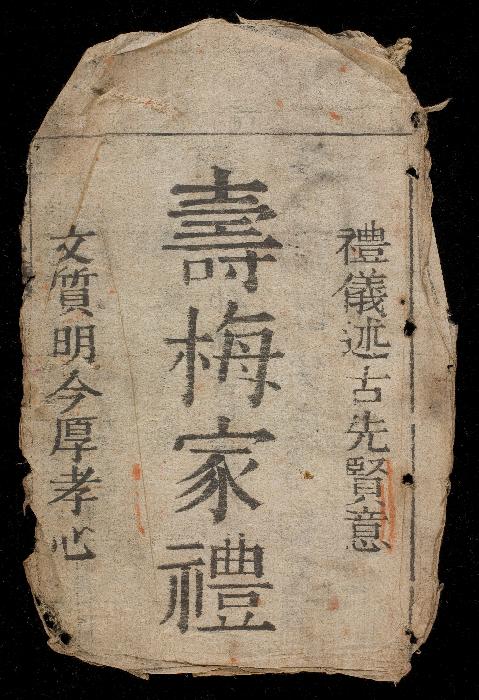 禮儀述古先賢意
壽梅家禮
文質明今厚孝心